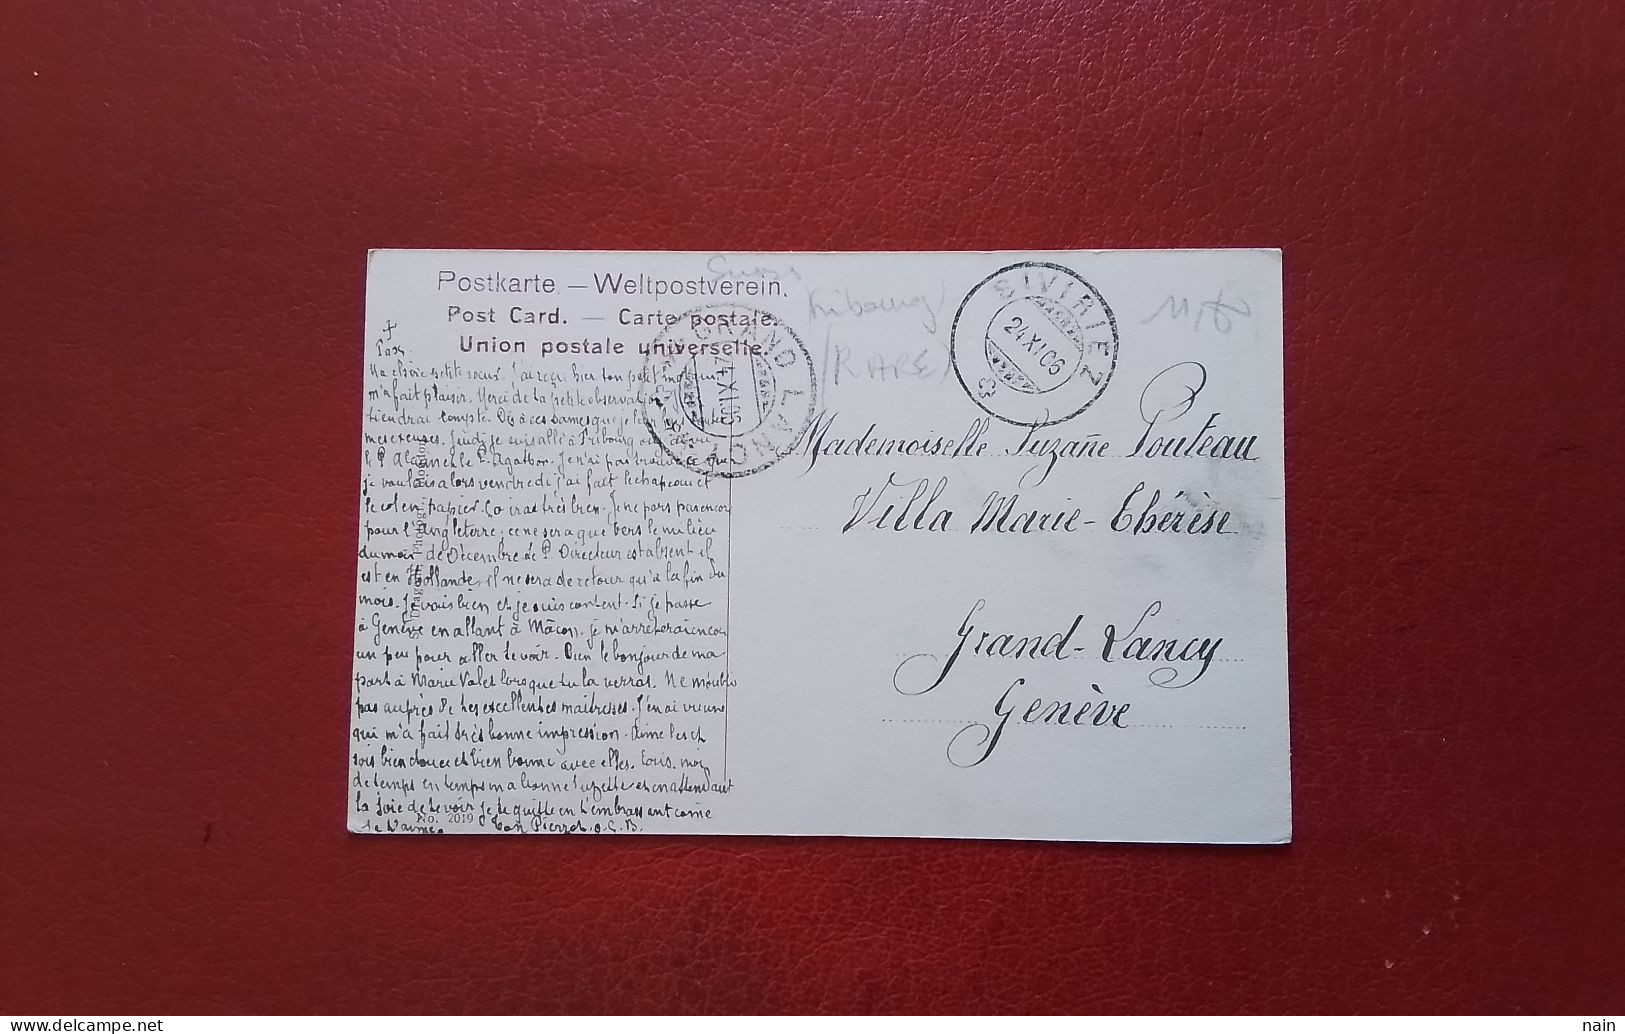 Postkarte. — Weltpostverein.
Post Card. — Carte postale.
Union postale universelle.
Suisse
Fribourg
(RARE)
SIVIRIEZ
24.XI.06
GRAND LANCY
24.XI.06
+
Pax
Ma chère petite soeur. J'ai reçu hier ton petit mot qui
m'a fait plaisir. Merci de la petite observation
tiendrai compte. Dis à ces dames que je leur
mes excuses. Jeudi je suis allé à Fribourg
le P. et le P. Agathon. Je n'ai pas trouvé ce que
je voulais alors vendredi j'ai fait le chapeau et
le col en papier. Ça ira très bien. Je ne pars pas encor
pour l'Angleterre, ce ne sera que vers le milieu
du mois de Décembre le P. Directeur est absent il
est en Hollande, il ne sera de retour qu'à la fin du
mois. Je vais bien et je suis content. Si je passe
à Genève en allant à Mâcon, je m'arrêterai encor
un peu pour aller te voir. Dis le bonjour de ma
part à Marie Valet lorsque tu la verras. Ne m'oublie
pas auprès de tes excellentes maîtresses. J'en ai vu une
qui m'a fait très bonne impression. Aime les et
sois bien douce et bien bonne avec elles. Ecris-moi
de temps en temps ma bonne Suzette et en attendant
la joie de te voir je te quitte en t'embrassant come
je t'aime Ton Pierrot. o.S.B.
No. 2019
Mademoiselle Suzane Pouteau
Villa Marie-Thérèse
Grand-Lancy
Genève
nain
delcampe.net